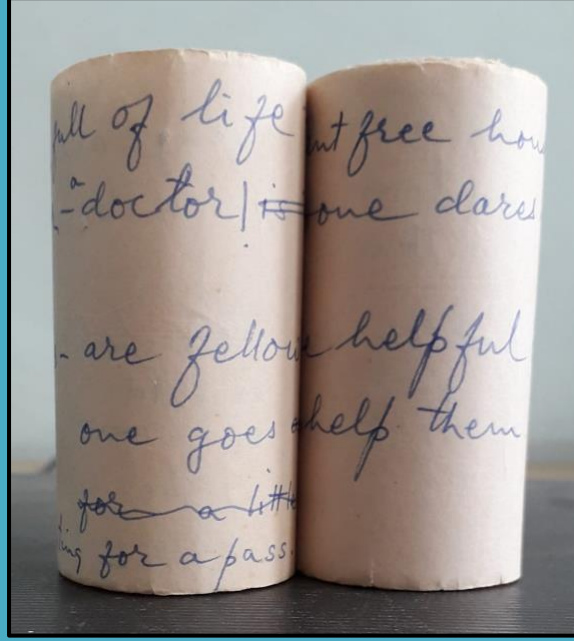 full of life
a
-doctor| is
- are fellow
one goes
for a little
ing for a pass.
nt free hou
one dares
helpful
help them